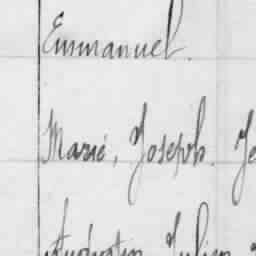 Emmanuel.
Marie, Joseph. Je
Augustin Julien